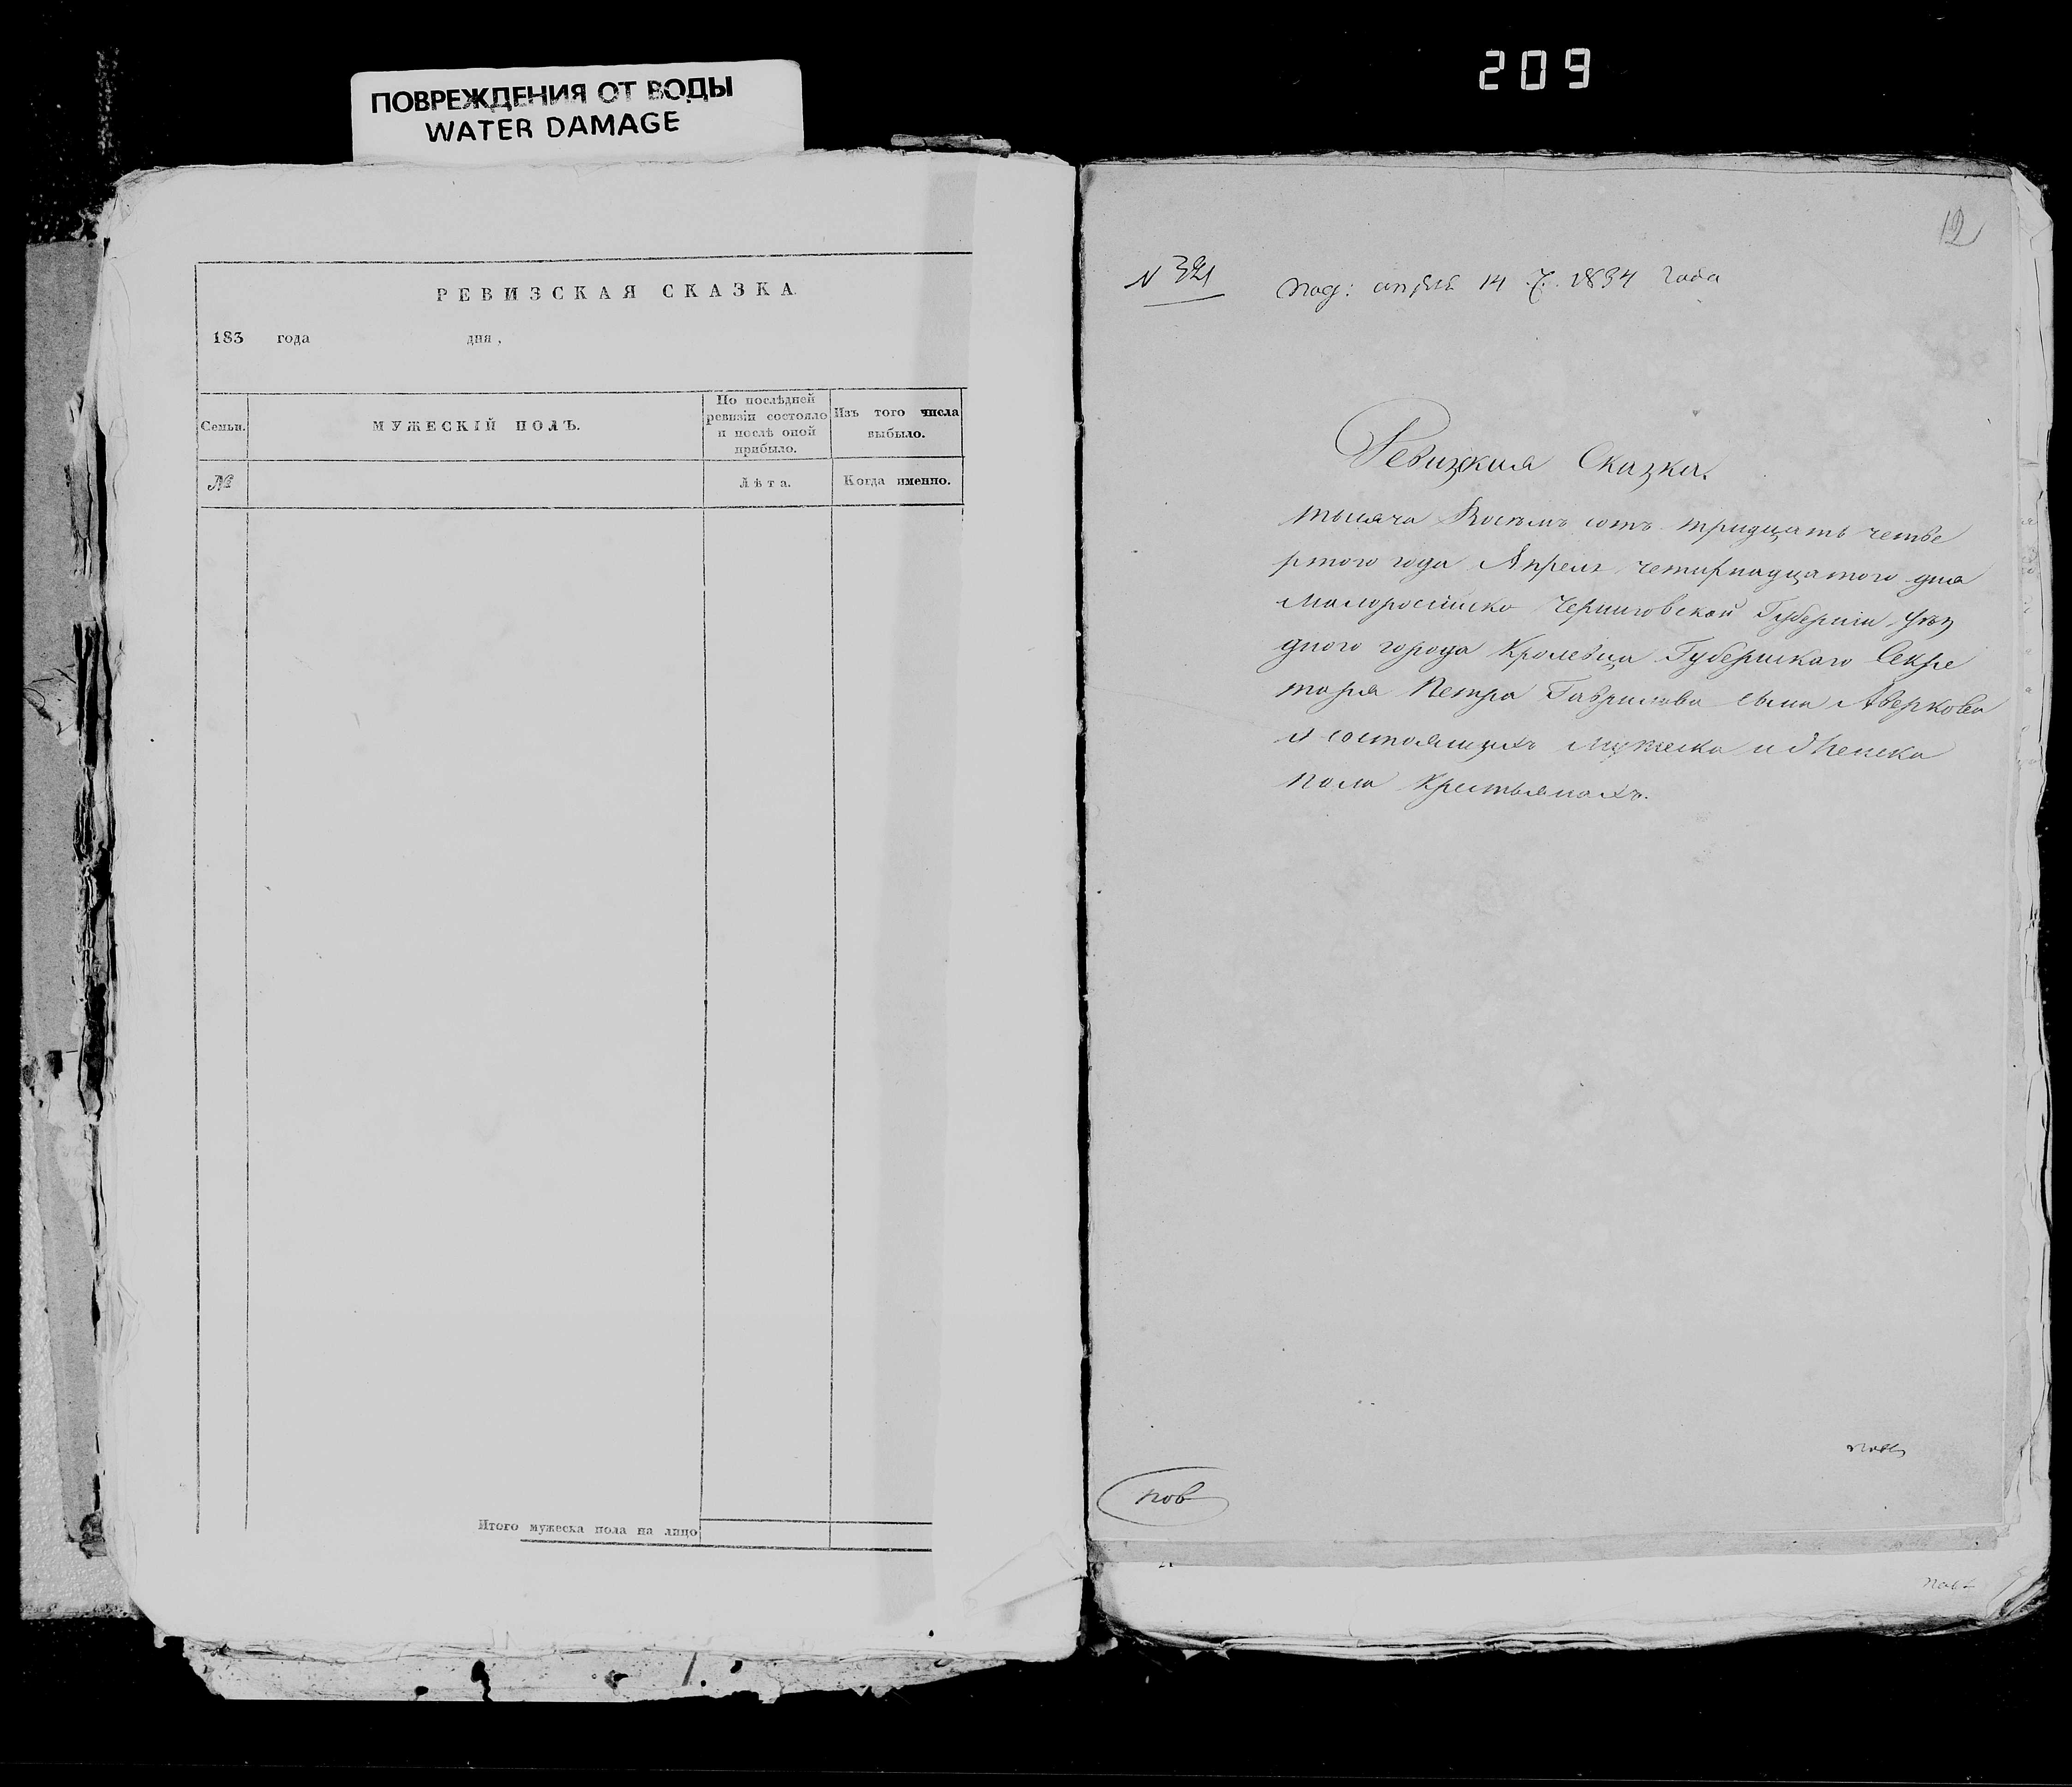 ПОВРЕЖДЕНИЯ ОТ ВОДЫ
WATER DAMAGE
209
РЕВИЗСКАЯ СКАЗКА
183 года дня,
Семьи.
МУЖЕСКІЙ ПОЛЪ.
По послѣдней
ревизіи состояло
и послѣ оной
прибыло.
Изъ того числа
выбыло.
№
Лѣта.
Когда именно.
Итого мужеска пола на лицо
12
N 321
под: апреля 14 1834 года
Ревизкия Сказка.
тысяча Восемъ сотъ тридцать четве
ртого года Апреля четирнадцатого дня
Малоросійско Черниговской Губерніи уѣз
дного города Кролевца Губернскаго Секре
таря Петра Гаврилова сына Аверкова
о состоящихъ мужеска и Женска
пола Крестьянахъ.
пов